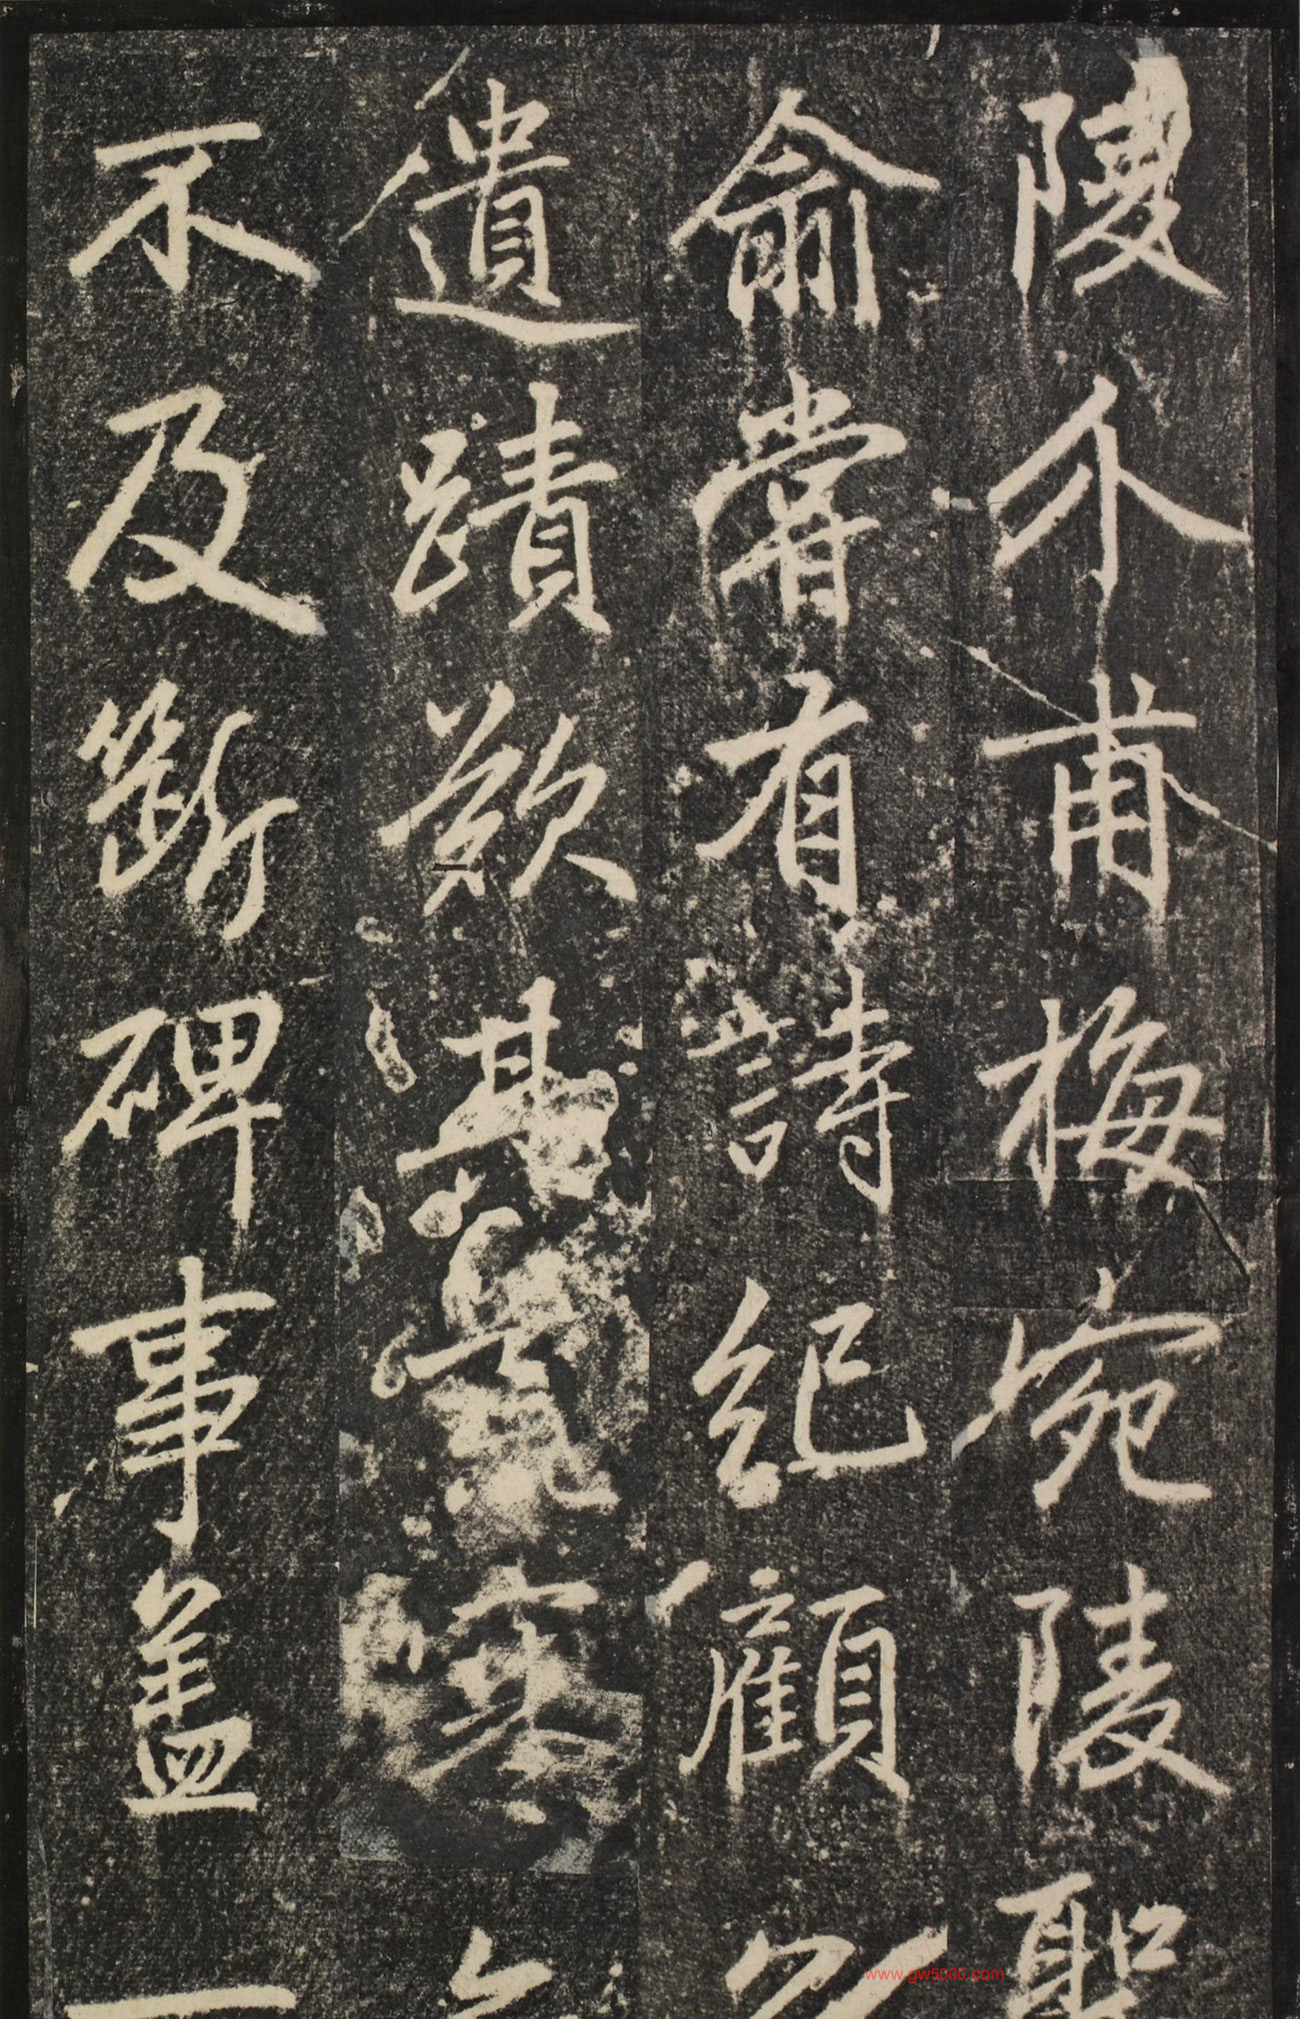 陵介甫梅宛陵聖
俞嘗有詩紀顧
遺蹟
不及斷碑事蓋
www.gw5000.com